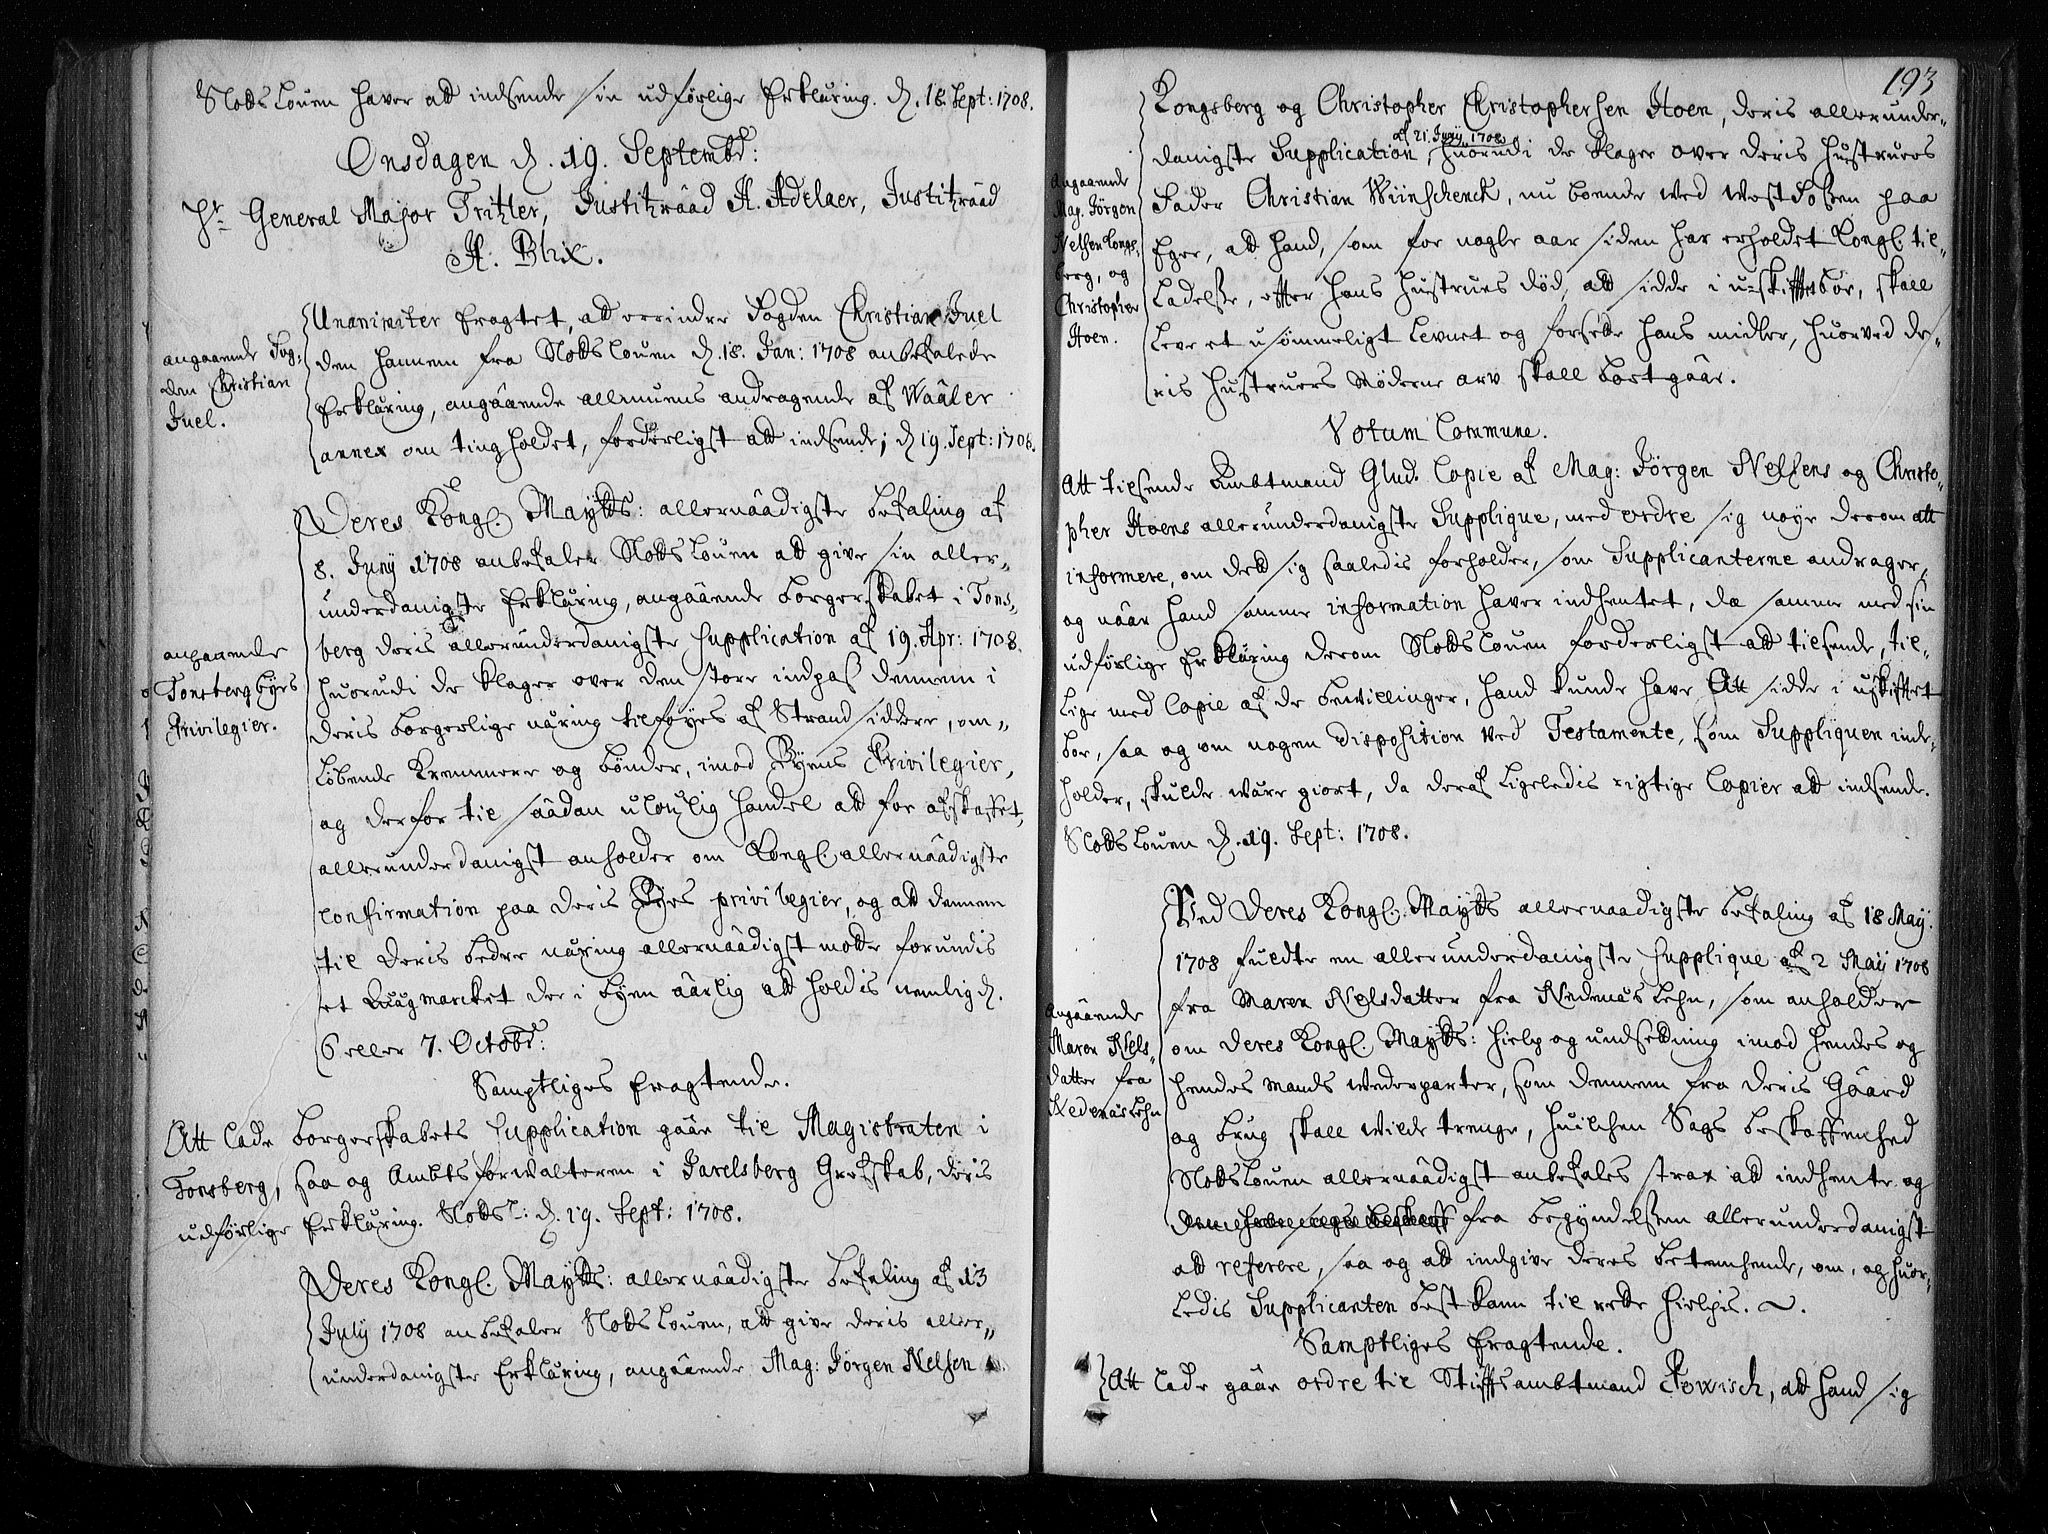 Slotts Louen haver att indsende sin udførlige Erklæring. d. 18. Sept: 1708.
Onsdagen d. 19. Septembr:
Hr. General Major Tritzler, Justitzrååd H. Adelaer, Justitzrååd
H. Blix.
angaaende Fog:
den Christian
Juel.
Unanimiter Eragtet, att erindre Fogden Christian Juel
den hannem fra Slotts Louen d. 18. Jan: 1708 anbefalede
Erklæring, angåående allmuens andragende af Wååler
annex om tingholdet, forderligst att indsende; d 19. Sept: 1708.
angaaende
Tonsberg Byes
Privilegier.
Deres Kongl. Maytts: allernåådigste befaling af
8. Juny 1708 anbefaler Slotts Louen att give sin aller-
underdanigste Erklæring, angåående borgerskabet i Tons-
berg deris allerunderdanigste supplication af 19. Apr: 1708.
huorudi de klager over den store indpas dennem i
deris borgerlige næring tilføyes af Strandsiddere, om-
løbende Kremmere og bønder, imod Byens Privilegier,
og derfor til såådan uloulig handel att for afskaffet,
allerunderdanigst anholder om Kongl. allernåådigste
Confirmation paa deris Byes privilegier, og att dennem
til deris bedre næring allernåådigst motte forundis
et marcket der i byen åårlig att holdis nemlig d.
6 eller 7. Octobr:
Samptliges Eragtende.
Att lade borgerskabets supplication gååe til Magistraten i
Tonsberg, saa og Ambtsforwalteren i Jarelsberg Grefskab, deris
udførlige Erklæring. Slotts L: d. 19. Sept: 1708.
Deres Kongl. Maytts: allernåådigste befaling af 13
July 1708 anbefaler Slotts Louen, att give deris aller-
underdanigste Erklæring, angåående Mag: Jørgen Nelsen
193
Kongsberg og Christopher Christophersen Hoen, deris allerunder-
af 21. Juny 1708
danigste Supplication huorudi de klager over deris hustruers
Fader Christian Wiinschenck, nu boende wed westFossen paa
Eger, att hand, som for nogle aar siden har erholdet Kongl. til-
ladelsse, efter hans hustrues død, att sidde i u-skifftet boe, skall
leve et usømmeligt levnet og forsette hans midler, huorved de-
ris hustruers Møderne arv skall bortgååe.
Angaaende
Mag. Jörgen
Nelsen Kongs-
berg, og
Christopher
Hoen.
Votum Commune.
Att tilsende Ambtmand Glud. Copie af Mag: Jörgen Nelsens og Christo-
pher Hoens allerunderdanigste Supplique, med ordre sig nøye derom att
informere, om dett sig saaledis forholder, som Supplicanterne andrager,
og nåår hand samme information haver indhentet, da samme med sin
udførlige Erklæring derom Slotts Louen forderligst att tilsende, til-
lige med Copie af de bewillinger, hand kunde have Att sidde i uskifftet
boe, saa og om nogen Disposition ved Testamente, som Suppliquen inde-
holder, skulde være giort, da deraf ligeledis rigtige Copier att indsende.
Slotts Louen d. 19. Sept: 1708.
Angåaende
Maren Nels-
datter fra
Nedenæs Lehn
Ved Deres Kongl: Maytts allernaadigste befaling af 18 May:
1708 fuldte en allerunderdanigste supplique af 2 Maij 1708
fra Maren Nelsdatter fra Nedenæs Lehn, som anholder
om Deres Kongl. Maytts: hielp og undsettning imod hendes og
hendes mands wederparter, som dennem fra deris Gåård
og brug skall wilde trenge, huilchen Sags beskaffenhed
Slotts Louen allernåådigst anbefales strax att indhente og
fra begyndelsen allerunderdanigst
att referere, saa og att indgive deres betenchende, om, og huor-
ledis Supplicanten best kann til rette hielpis.
Samptliges Eragtende.
Att lade gååe ordre til Stifftsambtmand Powisch, att hand sig